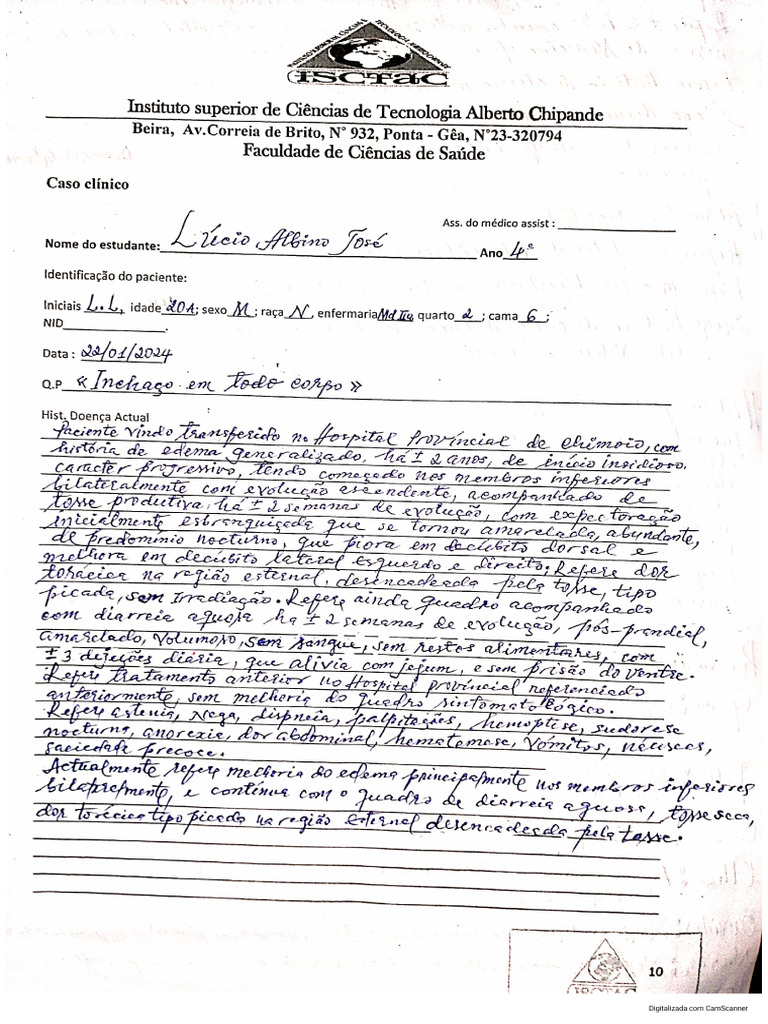 ISCTAC
Instituto superior de Ciências de Tecnologia Alberto Chipande
Beira, Av.Correia de Brito, N° 932, Ponta - Gêa, N°23-320794
Faculdade de Ciências de Saúde
Caso clínico
Ass. do médico assist :
Nome do estudante: Lúcio Albino José Ano 4°
Identificação do paciente:
Iniciais L.L, idade 20A; sexo M; raça N, enfermaria Md II, quarto 2; cama 6;
NID
Data : 22/01/2024
Q.P «Inchaço em todo corpo»
Hist. Doença Actual
Paciente vindo transferido no Hospital Provincial de chimoio, com
história de edema generalizado, há ± 2 anos, de início insidioso,
caracter progressivo, tendo começado nos membros inferiores
bilateralmente com evolução ascendente, acompanhado de
tosse produtiva, há ± 2 semanas de evolução, com expectoração
inicialmente esbranquiçada que se tornou amarelada, abundante,
de predomínio nocturno, que piora em decúbito dorsal e
melhora em decúbito lateral Esquerdo e direito. Refere dor
torácica na região esternal, desencadeada pela tosse, tipo
picada, sem Irradiação. Refere ainda quadro acompanhado
com diarreia aquosa há ± 2 semanas de evolução, pós-prandial,
amarelado, volumoso, sem sangue, sem restos alimentares, com
± 3 dejeções diária, que alivia com jejum, e sem prisão do ventre.
Refere tratamento anterior no Hospital provincial referenciado
anteriormente, sem melhoria do quadro sintomatológico.
Refere astenia, Nega, dispneia, palpitações, hemoptise, sudorese
nocturna, anorexia, dor abdominal, hematemese, vómitos, náuseas,
saciedade precoce.
Actualmente refere melhoria do edema principalmente nos membros inferiores
bilateralmente, e continua com o quadro de diarreia aquosa, tosse seca,
dor torácica tipo picada na região esternal desencadeada pela tosse.
10
ISCTAC
Digitalizada com CamScanner